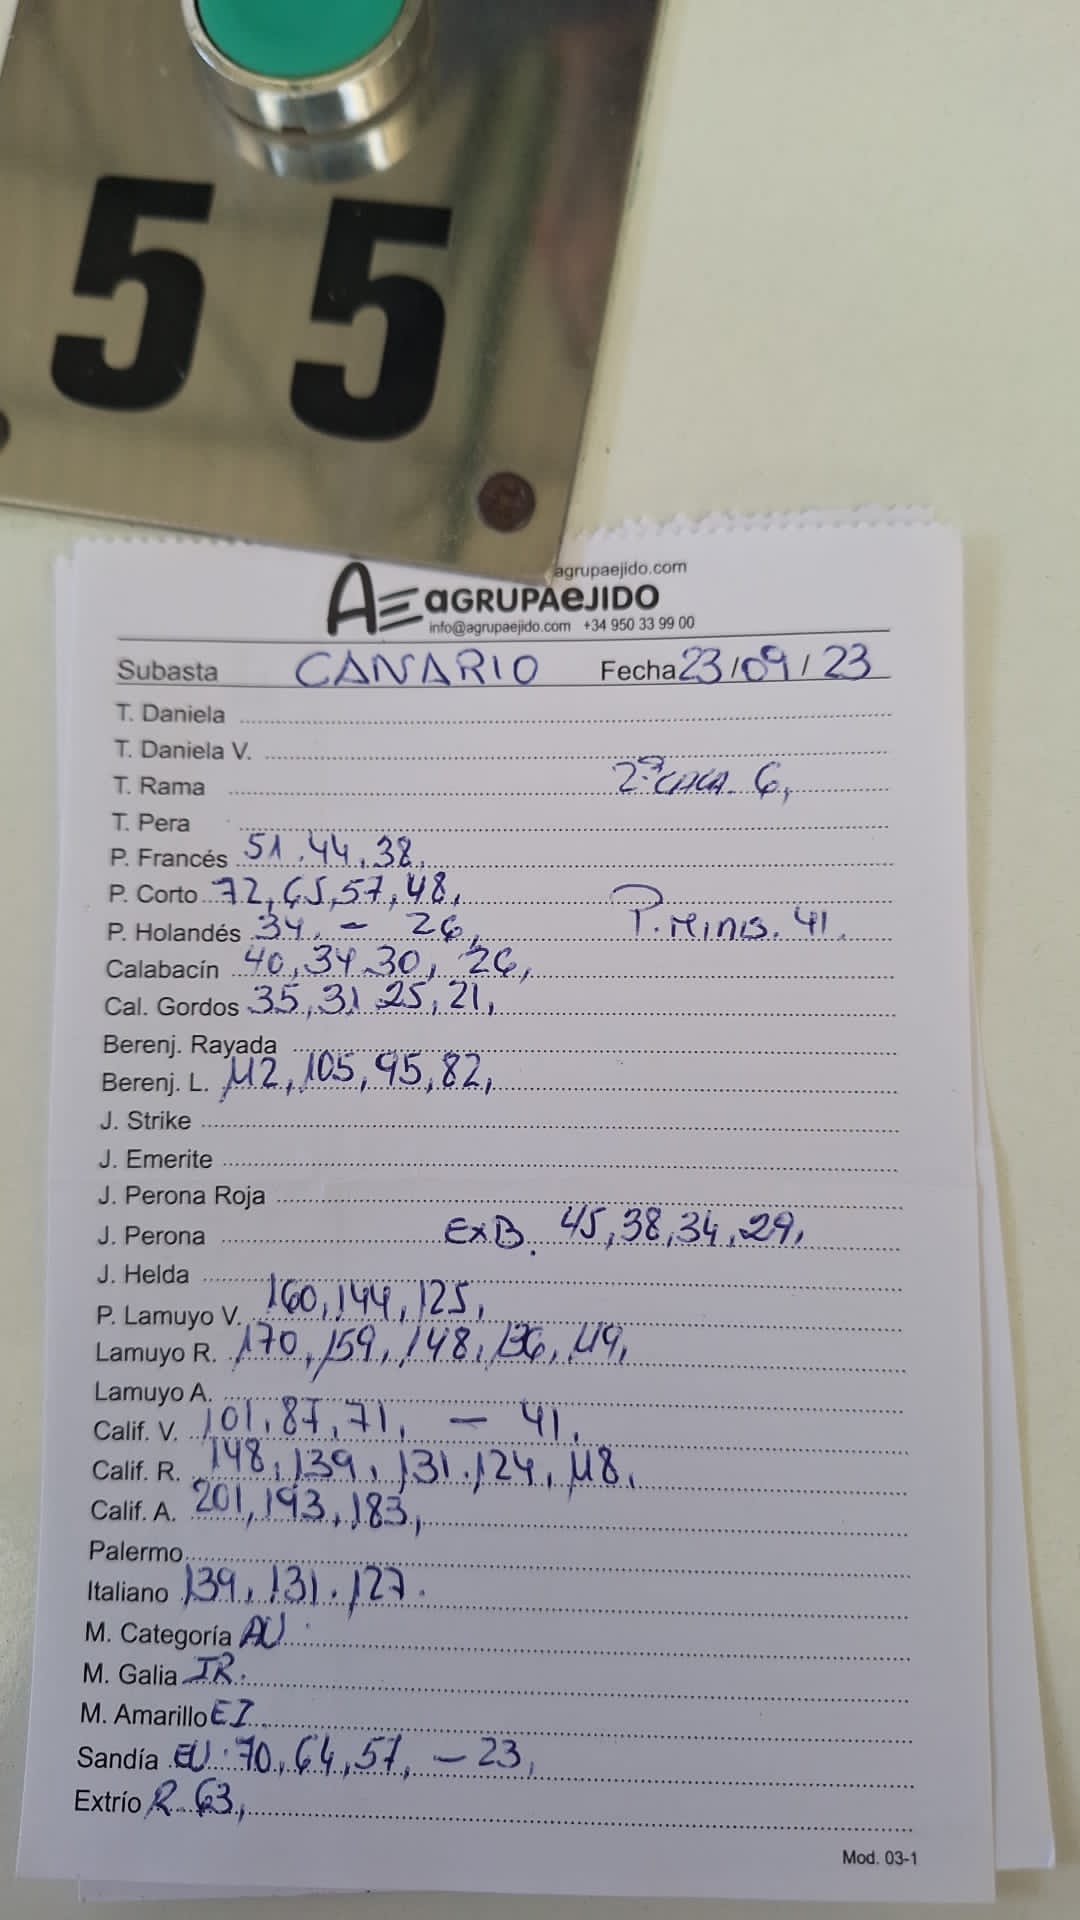 55
agrupaejido.com
AE aGRUPAeJIDO
info@agrupaejido.com +34 950 33 99 00
Subasta CANARIO Fecha 23/09/23
T. Daniela
T. Daniela V.
T. Rama 6,
T. Pera
P. Francés 51, 44, 38,
P. Corto 72, 65, 57, 48,
P. Holandés 34, - 26, P. Minis. 41,
Calabacín 40, 34, 30, 26,
Cal. Gordos 35, 31, 25, 21,
Berenj. Rayada
Berenj. L. 112, 105, 95, 82,
J. Strike
J. Emerite
J. Perona Roja
J. Perona ExB. 45, 38, 34, 29,
J. Helda
P. Lamuyo V. 160, 144, 125,
Lamuyo R. 170, 159, 148, 136, 119,
Lamuyo A.
Calif. V. 101, 87, 71, - 41,
Calif. R. 148, 139, 131, 124, 118,
Calif. A. 201, 193, 183,
Palermo
Italiano 139, 131, 127.
M. Categoría AU
M. Galia IR.
M. Amarillo EI
Sandía EU. 70, 64, 57, - 23,
Extrío R. 63,
Mod. 03-1